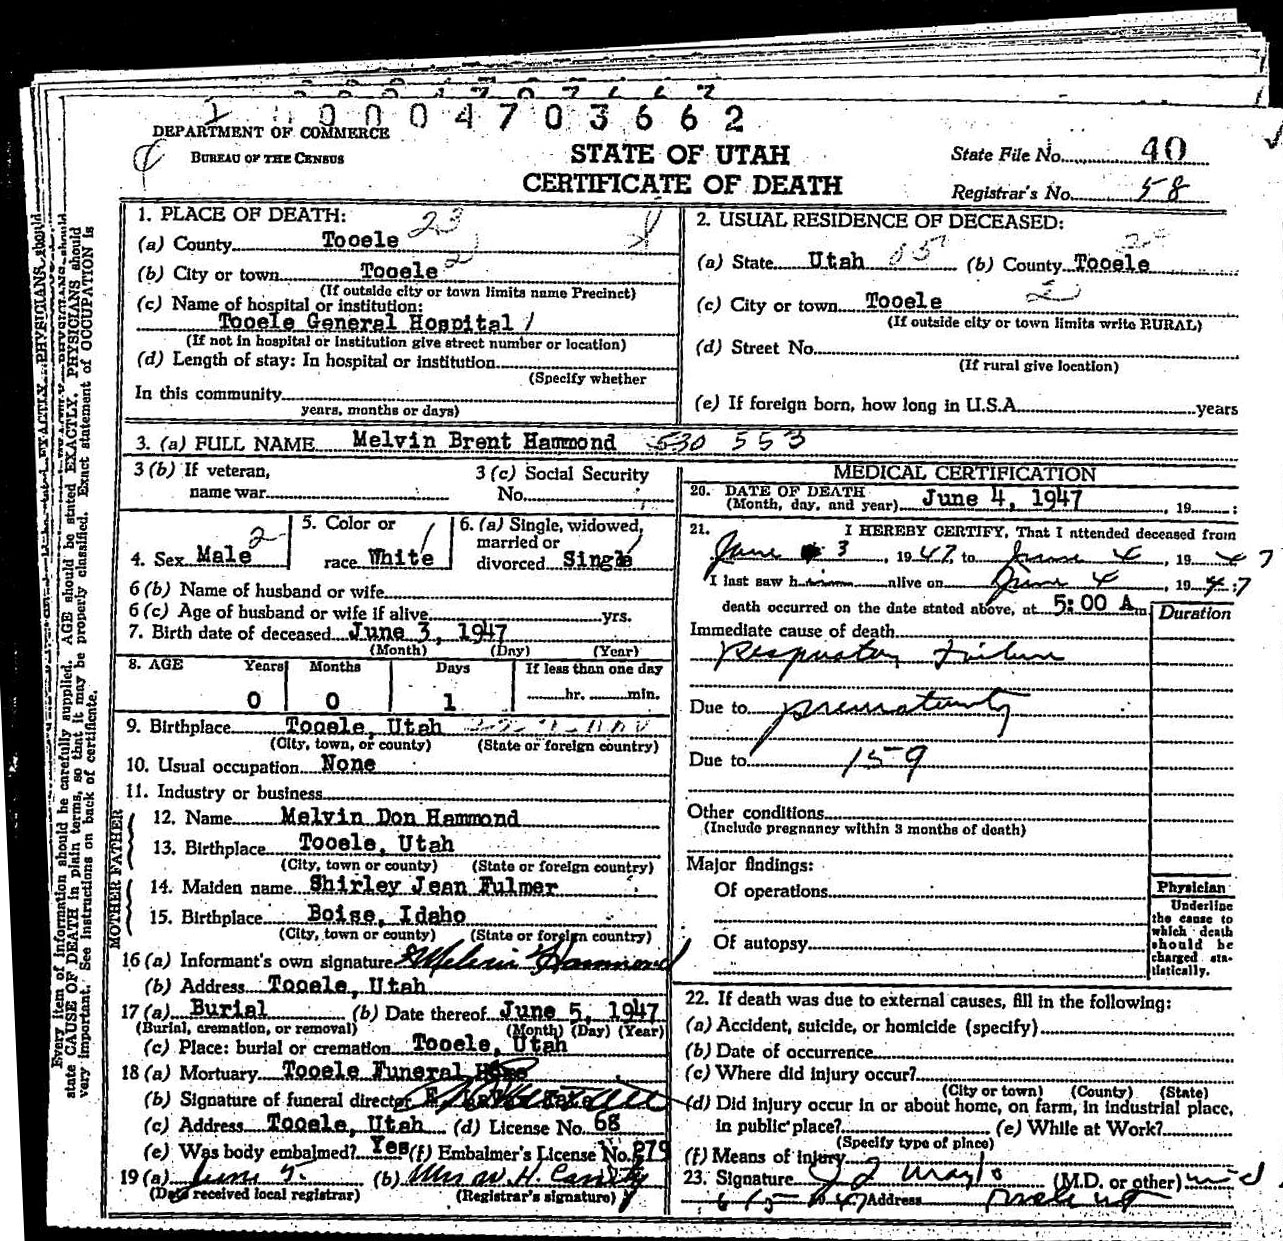 0 0 0 4 7 0 3 6 6 2
DEPARTMENT OF COMMERCE
BUREAU OF THE CENSUS
STATE OF UTAH
CERTIFICATE OF DEATH
State File No. 40
Registrar's No. 58
1. PLACE OF DEATH: 23
(a) County Tooele
(b) City or town Tooele 2
(If outside city or town limits name Precinct)
(c) Name of hospital or institution:
Tooele General Hospital 1
(If not in hospital or institution give street number or location)
(d) Length of stay: In hospital or institution
(Specify whether
In this community
years, months or days)
2. USUAL RESIDENCE OF DECEASED:
(a) State Utah (b) County Tooele
(c) City or town Tooele 2
(If outside city or town limits write RURAL)
(d) Street No.
(If rural give location)
(e) If foreign born, how long in U.S.A. years
3. (a) FULL NAME Melvin Brent Hammond 530 553
3 (b) If veteran,
name war
3 (c) Social Security
No.
4. Sex Male 2
5. Color or
race White 1
6. (a) Single, widowed,
married or
divorced Single 1
6 (b) Name of husband or wife
6 (c) Age of husband or wife if alive yrs.
7. Birth date of deceased June 3, 1947
(Month) (Day) (Year)
8. AGE Years Months Days If less than one day
0 0 1 hr. min.
9. Birthplace Tooele, Utah
(City, town, or county) (State or foreign country)
10. Usual occupation None
11. Industry or business
FATHER
12. Name Melvin Don Hammond
13. Birthplace Tooele, Utah
(City, town or county) (State or foreign country)
MOTHER
14. Maiden name Shirley Jean Fulmer
15. Birthplace Boise, Idaho
(City, town or county) (State or foreign country)
16 (a) Informant's own signature Melvin Hammond
(b) Address Tooele, Utah
17 (a) Burial (b) Date thereof June 5, 1947
(Burial, cremation, or removal) (Month) (Day) (Year)
(c) Place: burial or cremation Tooele, Utah
18 (a) Mortuary Tooele Funeral Home
(b) Signature of funeral director
(c) Address Tooele, Utah (d) License No. 68
(e) Was body embalmed? Yes (f) Embalmer's License No. 279
19 (a) June 5. (b) Mrs W. H.
(Date received local registrar) (Registrar's signature)
MEDICAL CERTIFICATION
20. DATE OF DEATH
(Month, day, and year) June 4, 1947, 19 ;
21. I HEREBY CERTIFY, That I attended deceased from
June 3, 1947 to June 4, 1947
I last saw him alive on June 4, 1947
death occurred on the date stated above, at 5:00 A m.
Duration
Immediate cause of death
Respiratory Failure
Due to prematurity
Due to 159
Other conditions
(Include pregnancy within 3 months of death)
Major findings:
Of operations
Of autopsy
Physician
Underline
the cause to
which death
should be
charged sta-
tistically.
22. If death was due to external causes, fill in the following:
(a) Accident, suicide, or homicide (specify)
(b) Date of occurrence
(c) Where did injury occur?
(City or town) (County) (State)
(d) Did injury occur in or about home, on farm, in industrial place,
in public place? (e) While at Work?
(Specify type of place)
(f) Means of Injury
23. Signature (M.D. or other) m d
Address
Every item of information should be carefully supplied. AGE should be stated EXACTLY. PHYSICIANS should
state CAUSE OF DEATH in plain terms, so that it may be properly classified. Exact statement of OCCUPATION is
very important. See instructions on back of certificate.